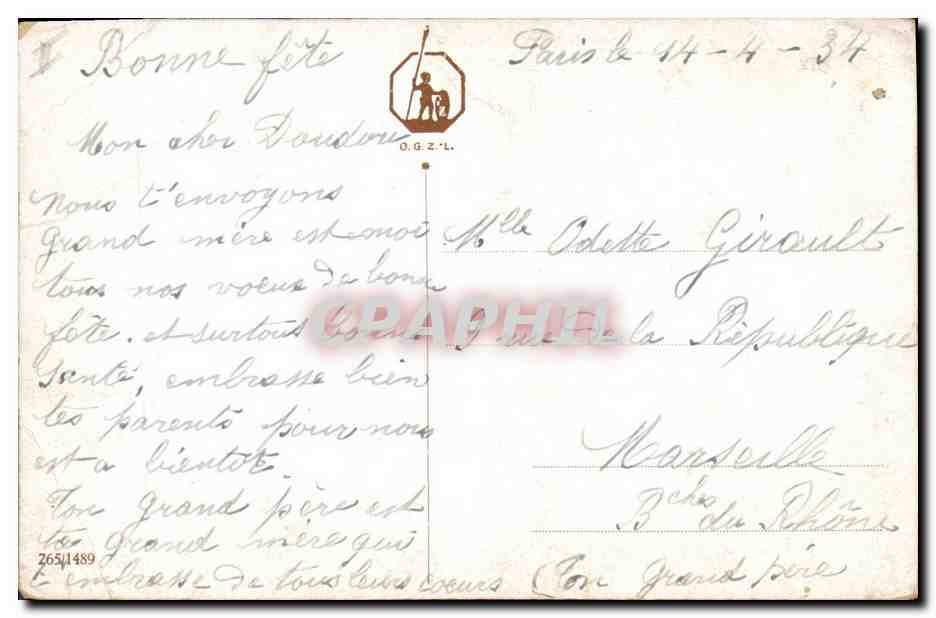 Bonne fête
Paris le 14-4-34
Mon cher Doudou
O.G.Z.-L.
nous t'envoyons
grand mère est moi
tous nos voeux de bonne
fête. et surtous bonne
Santé, embrasse bien
tes parents pour nous
est a bientot.
Ton grand père est
ta grand mère qui
t'embrasse de tous leurs coeurs (Ton grand père
265/1489
Mlle Odette Girault
9 rue de la République
Marseille
Bches du Rhône
CPAPHIL